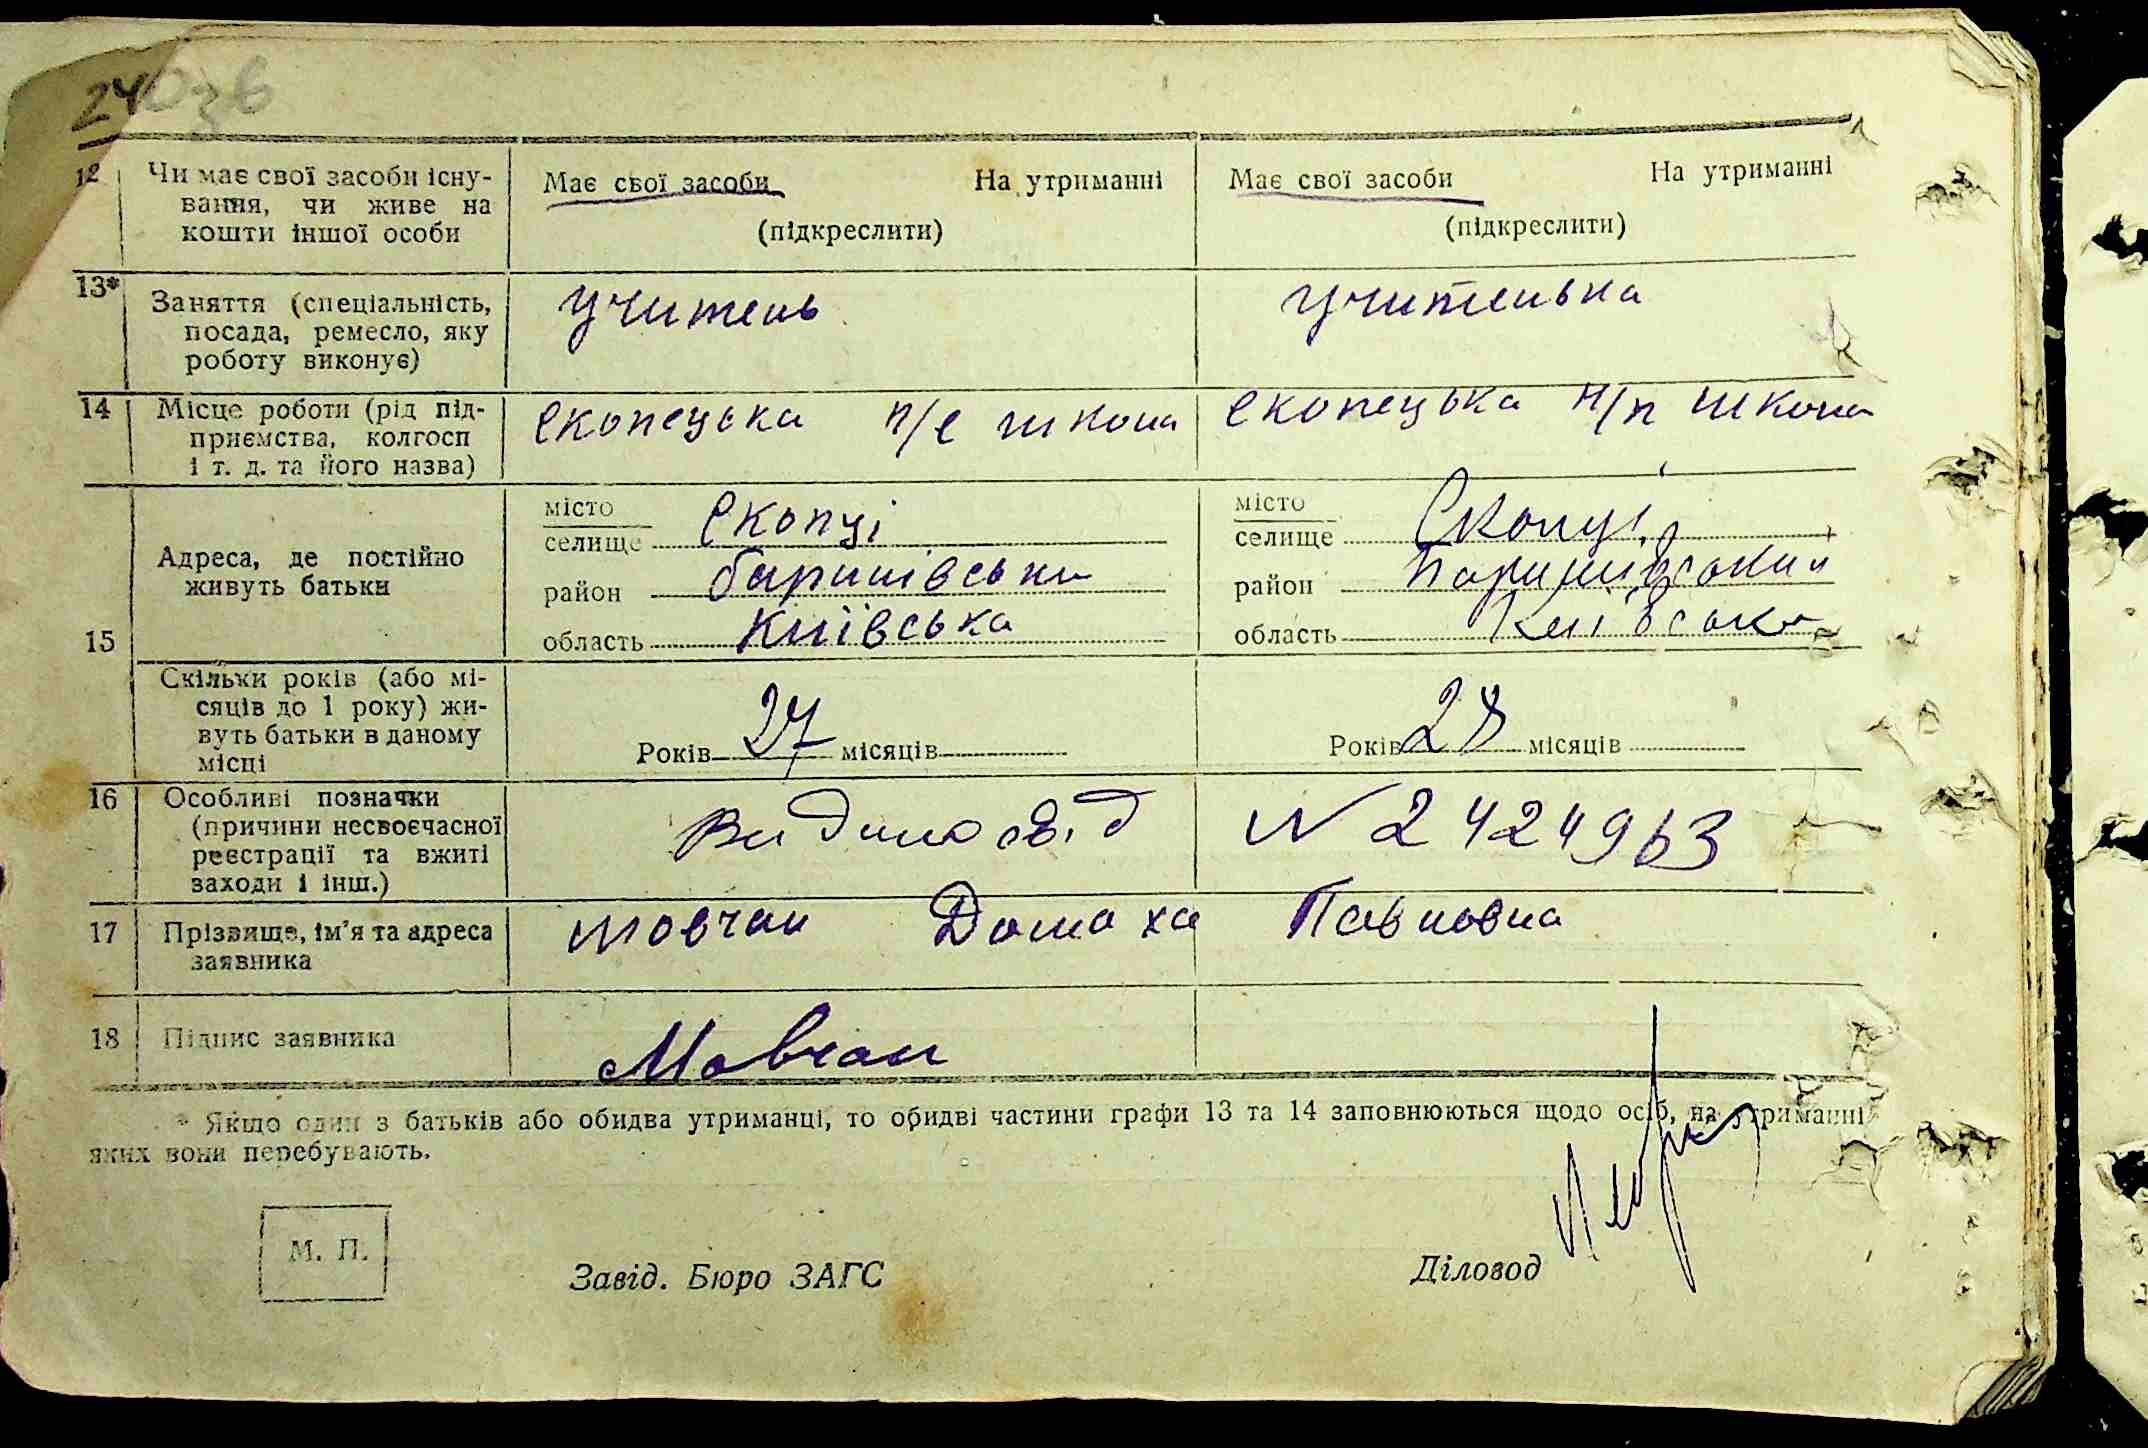 24 Озв
12 Чи має свої засоби існу-
вання, чи живе на
кошти іншої особи
Має свої засоби На утриманні
(підкреслити)
Має свої засоби На утриманні
(підкреслити)
13* Заняття (спеціальність,
посада, ремесло, яку
роботу виконує)
учитель
учителька
14 Місце роботи (рід під-
приємства, колгосп
і т. д. та його назва)
Скопецька п/с школа
Скопецька н/п школа
15 Адреса, де постійно
живуть батьки
місто
селище Скопці
район баришівськи
область київська
місто
селище Скопці
район Баришівський
область Київська
Скільки років (або мі-
сяців до 1 року) жи-
вуть батьки в даному
місці
Років 27 місяців
Років 28 місяців
16 Особливі позначки
(причини несвоєчасної
реєстрації та вжиті
заходи і інш.)
Видано свід N 2424963
17 Прізвище, ім'я та адреса
заявника
Мовчан Домаха Павловна
18 Підпис заявника
Мовчан
* Якщо один з батьків або обидва утриманці, то обидві частини графи 13 та 14 заповнюються щодо осіб, на утриманні
яких вони перебувають.
М. П.
Завід. Бюро ЗАГС
Діловод